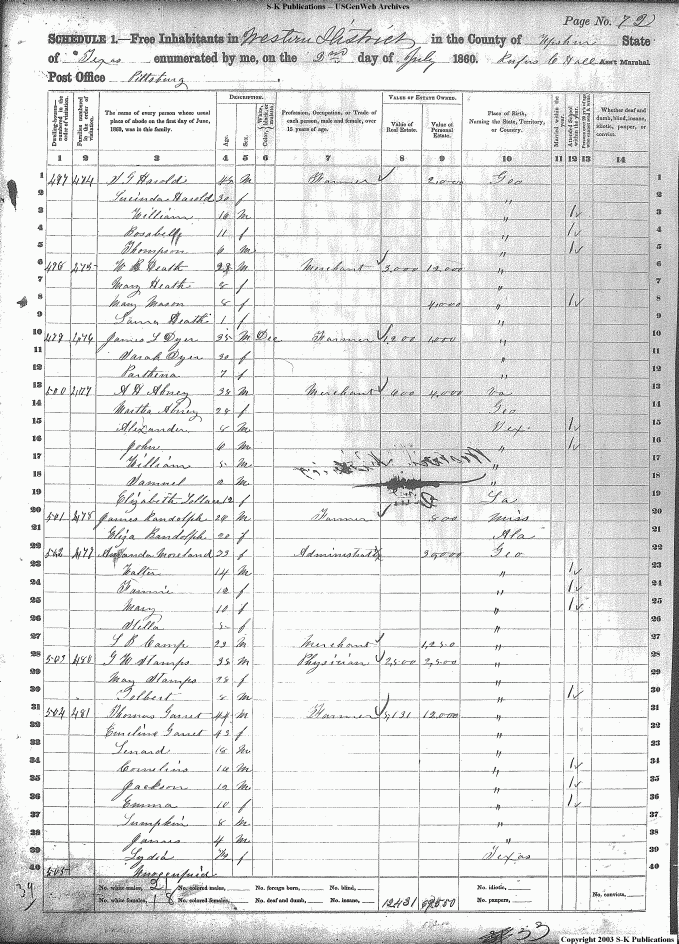 S-K Publications -- USGenWeb Archives
Page No. 72
SCHEDULE 1.—Free Inhabitants in Western District in the County of Upshur State
of Texas enumerated by me, on the 2nd day of July 1860. Rufus C Hall Ass't Marshal.
Post Office Pittsburg
Dwelling-houses—numbered in the order of visitation.
Families numbered in the order of visitation.
The name of every person whose usual place of abode on the first day of June, 1860, was in this family.
DESCRIPTION.
Age.
Sex.
Color, White, black, or mulatto.
Profession, Occupation, or Trade of each person, male and female, over 15 years of age.
VALUE OF ESTATE OWNED.
Value of Real Estate.
Value of Personal Estate.
Place of Birth, Naming the State, Territory, or Country.
Married within the year.
Attended School within the year.
Whether deaf and dumb, blind, insane, idiotic, pauper, or convict.
1 2 3 4 5 6 7 8 9 10 11 12 13 14
1 497 474 Harold M Farmer 2,000 Geo 1
2 Lucinda Harold 30 f " 2
3 William 10 M " 1 3
4 Rosabell 11 f " 1 4
5 Thompson 6 M " 1 5
6 498 475 Heath M Merchant 3,000 12,000 " 6
7 Mary Heath f " 7
8 Mary Mason 8 f 4,000 " 1 8
9 Laura Heath 1 f " 9
10 499 476 James L Dyer 35 M Farmer 1,200 1000 " 10
11 Sarah Dyer 30 f " 11
12 Parthena 7 f " 12
13 500 477 A H Abney 38 M Merchant 600 4,000 Va 13
14 Martha Abney 28 f Geo 14
15 Alexander 8 M Tex 1 15
16 John 6 M " 1 16
17 William 5 M " 17
18 Samuel 2 M " 18
19 Elizabeth 12 f La 19
20 501 478 James Randolph 28 M Farmer 800 Miss 20
21 Eliza Randolph 20 f Ala 21
22 502 479 Moreland 33 f 30,000 Geo 22
23 Walter 14 M " 1 23
24 Fannie 12 f " 1 24
25 Mary 10 f " 1 25
26 5 f " 26
27 L B Camp 22 M Merchant " 27
28 503 480 G W Stamps 38 M Physician 2,500 2,500 " 28
29 May Stamps 28 f " 29
30 Tolbert 8 M " 1 30
31 504 481 Thomas Garret 44 M Farmer 5,131 12,000 " 31
32 Emeline Garret 43 f " 32
33 Lenard 18 M " 33
34 Cornelius 14 M " 1 34
35 Jackson 12 M " 1 35
36 Emma 10 f " 1 36
37 Lumpkin 8 M " 37
38 James 4 M " 38
39 Lydia f Texas 39
40 505 40
No. white males, 21 No. colored males, No. foreign born, No. blind, No. idiotic, No. convicts,
No. white females, 18 No. colored females, No. deaf and dumb, No. insane, 12431 No. paupers,
Copyright 2003 S-K Publications